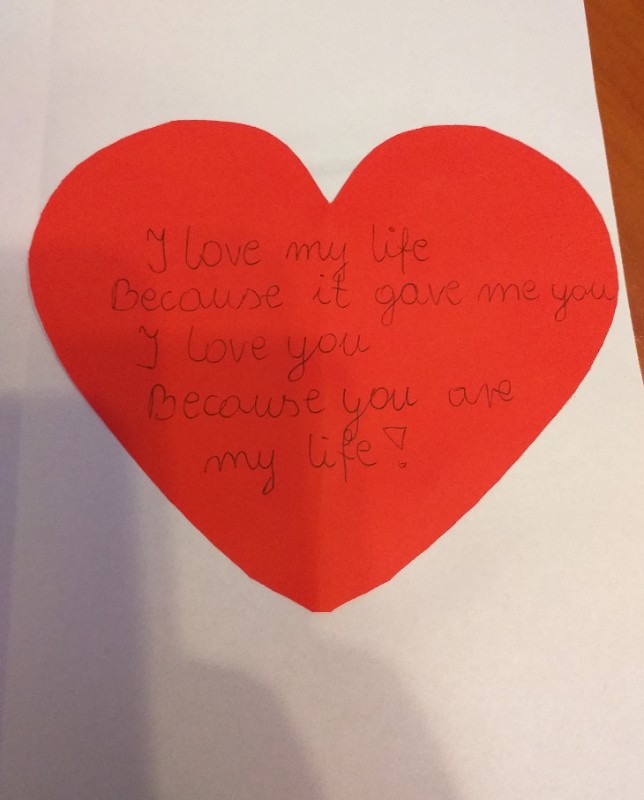 I love my life
Because it gave me you
I love you
Because you are
my life!